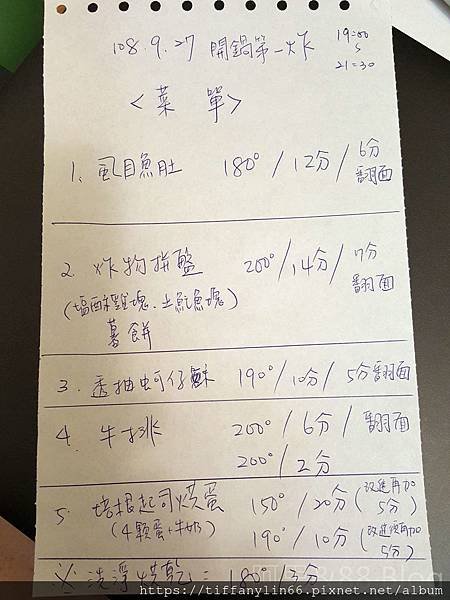 108.9.27 開鍋第一炸 19:00
21:30
<菜單>
1. 虱目魚肚 180°/12分/6分
翻面
2. 炸物拼盤 200°/14分/7分
翻面
(塩酥雞塊.土魠魚塊)
薯餅
3. 透抽蚵仔酥 190°/10分/5分翻面
4. 牛排 200°/6分/翻面
200°/2分
5. 培根起司烘蛋 150°/20分(改進再加
5分)
(4顆蛋+牛奶) 190°/10分(改進再加
5分)
※洗淨烘乾= 180° 3分
https://tiffanylin66.pixnet.net/album